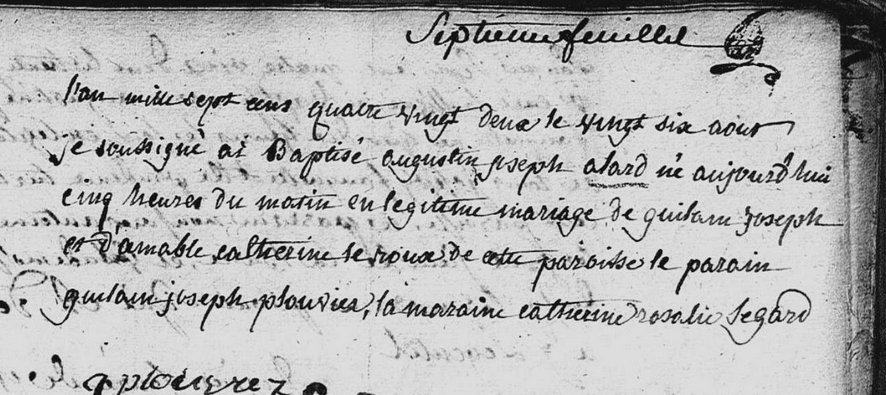 Septieme feuillet
l'an mille sept cens quatre vingt deux le vingt six aout
je soussigné ai Baptisé augustin joseph alard né aujourd'hui
cinq heures du matin en legitime mariage de guilain joseph
et d'amable catherine le roux de cette paroisse le parain
guilain joseph plouvier, la maraine catherine rosalie Segard
g plouvier